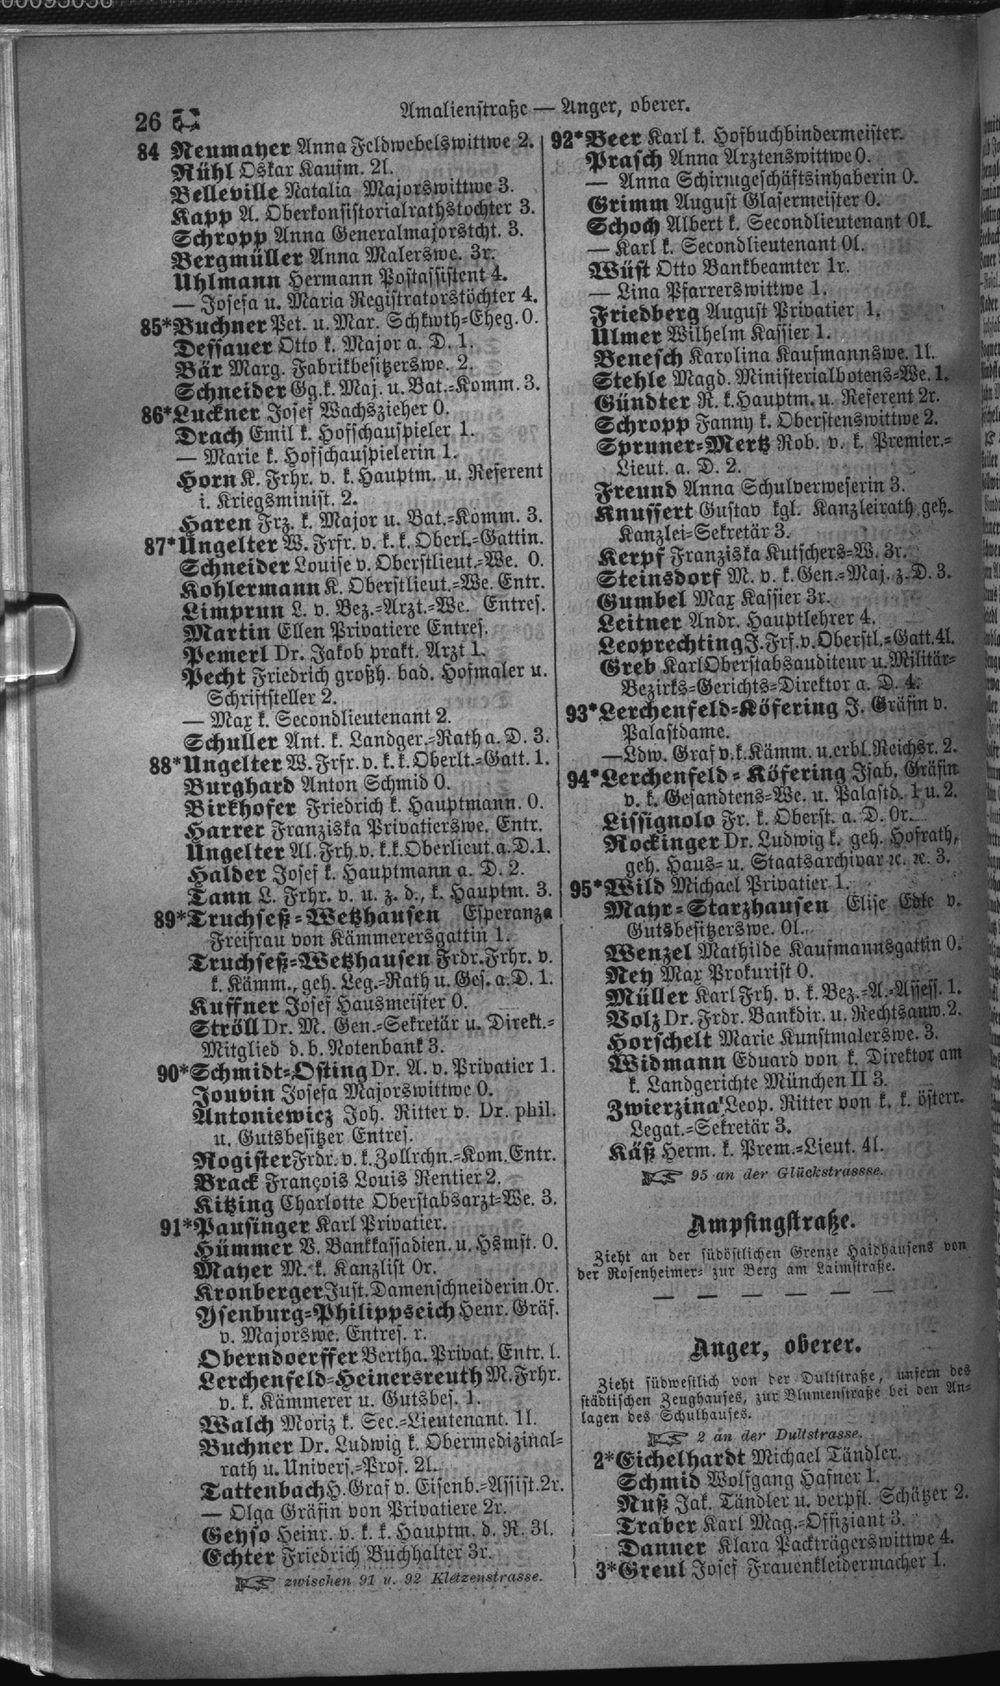 26
Amalienstraße — Anger, oberer.
84 Neumayer Anna Feldwebelswittwe 2.
Rühl Oskar Kaufm. 2l.
Belleville Natalia Majorswittwe 3.
Kapp A. Oberkonsistorialrathstochter 3.
Schropp Anna Generalmajorstcht. 3.
Bergmüller Anna Malerswe. 3r.
Uhlmann Hermann Postassistent 4.
— Josefa u. Maria Registratorstöchter 4.
85*Buchner Pet. u. Mar. Schkwth=Eheg. 0.
Dessauer Otto k. Major a. D. 1.
Bär Marg. Fabrikbesitzerswe. 2.
Schneider Gg. k. Maj. u. Bat.=Komm. 3.
86*Luckner Josef Wachszieher 0.
Drach Emil k. Hofschauspieler 1.
— Marie k. Hofschauspielerin 1.
Horn K. Frhr. v. k. Hauptm. u. Referent
i. Kriegsminist. 2.
Haren Frz. k. Major u. Bat.=Komm. 3.
87*Ungelter W. Frfr. v. k. k. Oberl.=Gattin.
Schneider Louise v. Oberstlieut.=We. 0.
Kohlermann K. Oberstlieut.=We. Entr.
Limprun L. v. Bez.=Arzt.=We. Entres.
Martin Ellen Privatiere Entres.
Pemerl Dr. Jakob prakt. Arzt 1.
Pecht Friedrich großh. bad. Hofmaler u.
Schriftsteller 2.
— Max k. Secondlieutenant 2.
Schuller Ant. k. Landger.=Rath a. D. 3.
88*Ungelter W. Frfr. v. k. k. Oberlt.=Gatt. 1.
Burghard Anton Schmid 0.
Birkhofer Friedrich k. Hauptmann. 0.
Harrer Franziska Privatierswe. Entr.
Ungelter Al. Frh. v. k. k. Oberlieut. a. D. 1.
Halder Josef k. Hauptmann a. D. 2.
Tann L. Frhr. v. u. z. d., k. Hauptm. 3.
89*Truchseß=Wetzhausen Esperanza
Freifrau von Kämmerersgattin 1.
Truchseß=Wetzhausen Frdr. Frhr. v.
k. Kämm., geh. Leg.=Rath u. Ges. a. D. 1.
Kuffner Josef Hausmeister 0.
Ströll Dr. M. Gen.=Sekretär u. Direkt.=
Mitglied d. b. Notenbank 3.
90*Schmidt=Osting Dr. A. v. Privatier 1.
Jouvin Josefa Majorswittwe 0.
Antoniewicz Joh. Ritter v. Dr. phil.
u. Gutsbesitzer Entres.
Rogister Frdr. v. k. Zollrchn.=Kom. Entr.
Brack François Louis Rentier 2.
Kitzing Charlotte Oberstabsarzt=We. 3.
91*Pausinger Karl Privatier.
Hümmer V. Bankkassadien. u. Hsmst. 0.
Mayer M. k. Kanzlist 0r.
Kronberger Just. Damenschneiderin. 0r.
Ysenburg=Philippseich Henr. Gräf.
v. Majorswe. Entres. r.
Oberndoerffer Bertha. Privat. Entr. l.
Lerchenfeld=Heinersreuth M. Frhr.
v. k. Kämmerer u. Gutsbes. 1.
Walch Moriz k. Sec.=Lieutenant. 1l.
Buchner Dr. Ludwig k. Obermedizinal=
rath u. Univers.=Prof. 2l.
Tattenbach H. Graf v. Eisenb.=Assist. 2r.
— Olga Gräfin von Privatiere 2r.
Geyso Heinr. v. k. k. Hauptm. d. R. 3l.
Echter Friedrich Buchhalter 3r.
☞ zwischen 91 u. 92 Kletzenstrasse.
92*Beer Karl k. Hofbuchbindermeister.
Prasch Anna Arztenswittwe 0.
— Anna Schirmgeschäftsinhaberin 0.
Grimm August Glasermeister 0.
Schoch Albert k. Secondlieutenant 0l.
— Karl k. Secondlieutenant 0l.
Wüst Otto Bankbeamter 1r.
— Lina Pfarrerswittwe 1.
Friedberg August Privatier 1.
Ulmer Wilhelm Kassier 1.
Benesch Karolina Kaufmannswe. 1l.
Stehle Magd. Ministerialbotens=We. 1.
Gündter R. k. Hauptm. u. Referent 2r.
Schropp Fanny k. Oberstenswittwe 2.
Spruner=Mertz Rob. v. k. Premier.=
Lieut. a. D. 2.
Freund Anna Schulverweserin 3.
Knussert Gustav kgl. Kanzleirath geh.
Kanzlei=Sekretär 3.
Kerpf Franziska Kutschers=W. 3r.
Steinsdorf M. v. k. Gen.=Maj. z. D. 3.
Gumbel Max Kassier 3r.
Leitner Andr. Hauptlehrer 4.
Leoprechting J. Frf. v. Oberstl.=Gatt. 4l.
Greb Karl Oberstabsauditeur u. Militär=
Bezirks=Gerichts=Direktor a. D. 4.
93*Lerchenfeld=Köfering J. Gräfin v.
Palastdame.
— Ldw. Graf v. k. Kämm. u. erbl. Reichsr. 2.
94*Lerchenfeld=Köfering Isab. Gräfin
v. k. Gesandtens=We. u. Palastd. 1 u. 2.
Lissignolo Fr. k. Oberst. a. D. 0r.
Rockinger Dr. Ludwig k. geh. Hofrath,
geh. Haus= u. Staatsarchivar ꝛc. ꝛc. 3.
95*Wild Michael Privatier 1.
Mayr=Starzhausen Elise Edle v.
Gutsbesitzerswe. 0l.
Wenzel Mathilde Kaufmannsgattin 0.
Ney Max Prokurist 0.
Müller Karl Frh. v. k. Bez.=A.=Assess. 1.
Volz Dr. Frdr. Bankdir. u. Rechtsanw. 2.
Horschelt Marie Kunstmalerswe. 3.
Widmann Eduard von k. Direktor am
k. Landgerichte München II 3.
Zwierzina Leop. Ritter von k. k. österr.
Legat.=Sekretär 3.
Käß Herm. k. Prem.=Lieut. 4l.
☞ 95 an der Glückstrassse.
Ampfingstraße.
Zieht an der südöstlichen Grenze Haidhausens von
der Rosenheimer= zur Berg am Laimstraße.
— — — — — —
Anger, oberer.
Zieht südwestlich von der Dultstraße, unfern des
städtischen Zeughauses, zur Blumenstraße bei den An=
lagen des Schulhauses.
☞ 2 an der Dultstrasse.
2*Eichelhardt Michael Tändler.
Schmid Wolfgang Hafner 1.
Nuß Jak. Tändler u. verpfl. Schätzer 2.
Traber Karl Mag.=Offiziant 3.
Danner Klara Packträgerswittwe 4.
3*Greul Josef Frauenkleidermacher 1.